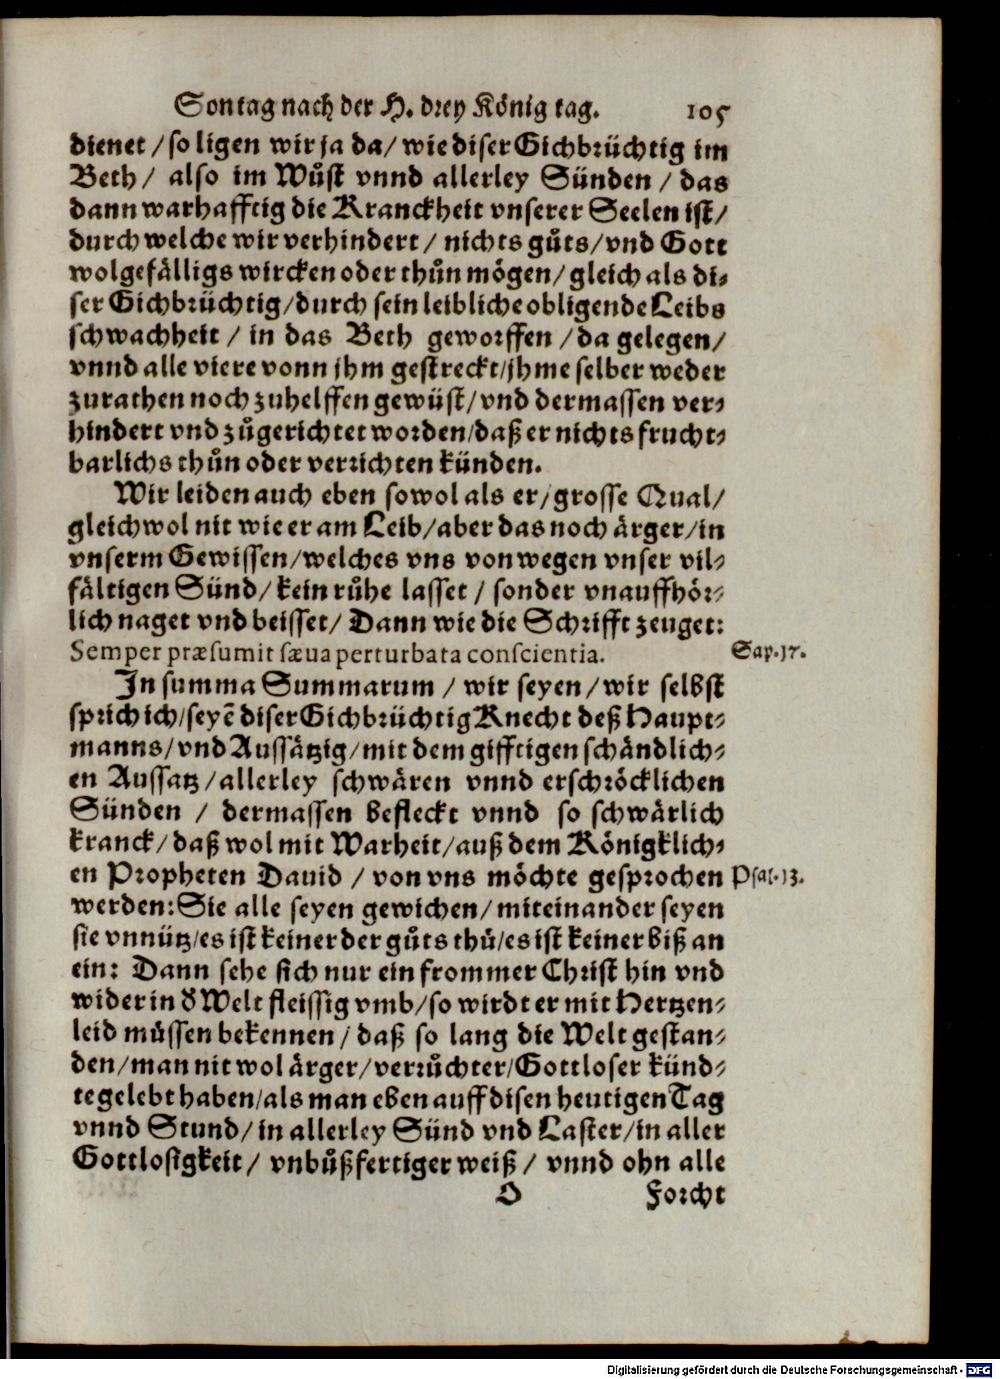 Sontag nach der H. drey König tag. 105
dienet / so ligen wir ja da / wie diser Gichbrüchtig im
Beth / also im Wůst vnnd allerley Sünden / das
dann warhafftig die Kranckheit vnserer Seelen ist /
durch welche wir verhindert / nichts gůts / vnd Gott
wolgefälligs wircken oder thůn mögen / gleich als di-
ser Gichbrüchtig / durch sein leibliche obligende Leibs
schwachheit / in das Beth geworffen / da gelegen /
vnnd alle viere vonn jhm gestreckt / jhme selber weder
zurathen noch zuhelffen gewüst / vnd dermassen ver-
hindert vnd zůgerichtet worden / daß er nichts frucht-
barlichs thůn oder verrichten künden.
Wir leiden auch eben sowol als er / grosse Qual /
gleichwol nit wie er am Leib / aber das noch ärger / in
vnserm Gewissen / welches vns von wegen vnser vil-
fältigen Sünd / kein růhe lasset / sonder vnauffhör-
lich naget vnd beisset / Dann wie die Schrifft zeuget:
Semper præsumit sæua perturbata conscientia. Sap. 17.
In summa Summarum / wir seyen / wir selbst
sprich ich / seyē diser Gichbrüchtig Knecht deß Haupt-
manns / vnd Aussätzig / mit dem gifftigen schändlich-
en Aussatz / allerley schwären vnnd erschröcklichen
Sünden / dermassen befleckt vnnd so schwärlich
kranck / daß wol mit Warheit / auß dem Königklich-
en Propheten Dauid / von vns möchte gesprochen Psal. 13.
werden: Sie alle seyen gewichen / miteinander seyen
sie vnnütz / es ist keiner der gůts thů / es ist keiner biß an
ein: Dann sehe sich nur ein frommer Christ hin vnd
wider in d Welt fleissig vmb / so wirdt er mit Hertzen-
leid müssen bekennen / daß so lang die Welt gestan-
den / man nit wol ärger / verrůchter / Gottloser künd-
te gelebt haben / als man eben auff disen heutigen Tag
vnnd Stund / in allerley Sünd vnd Laster / in aller
Gottlosigkeit / vnbůßfertiger weiß / vnnd ohn alle
O Forcht
Digitalisierung gefördert durch die Deutsche Forschungsgemeinschaft - DFG